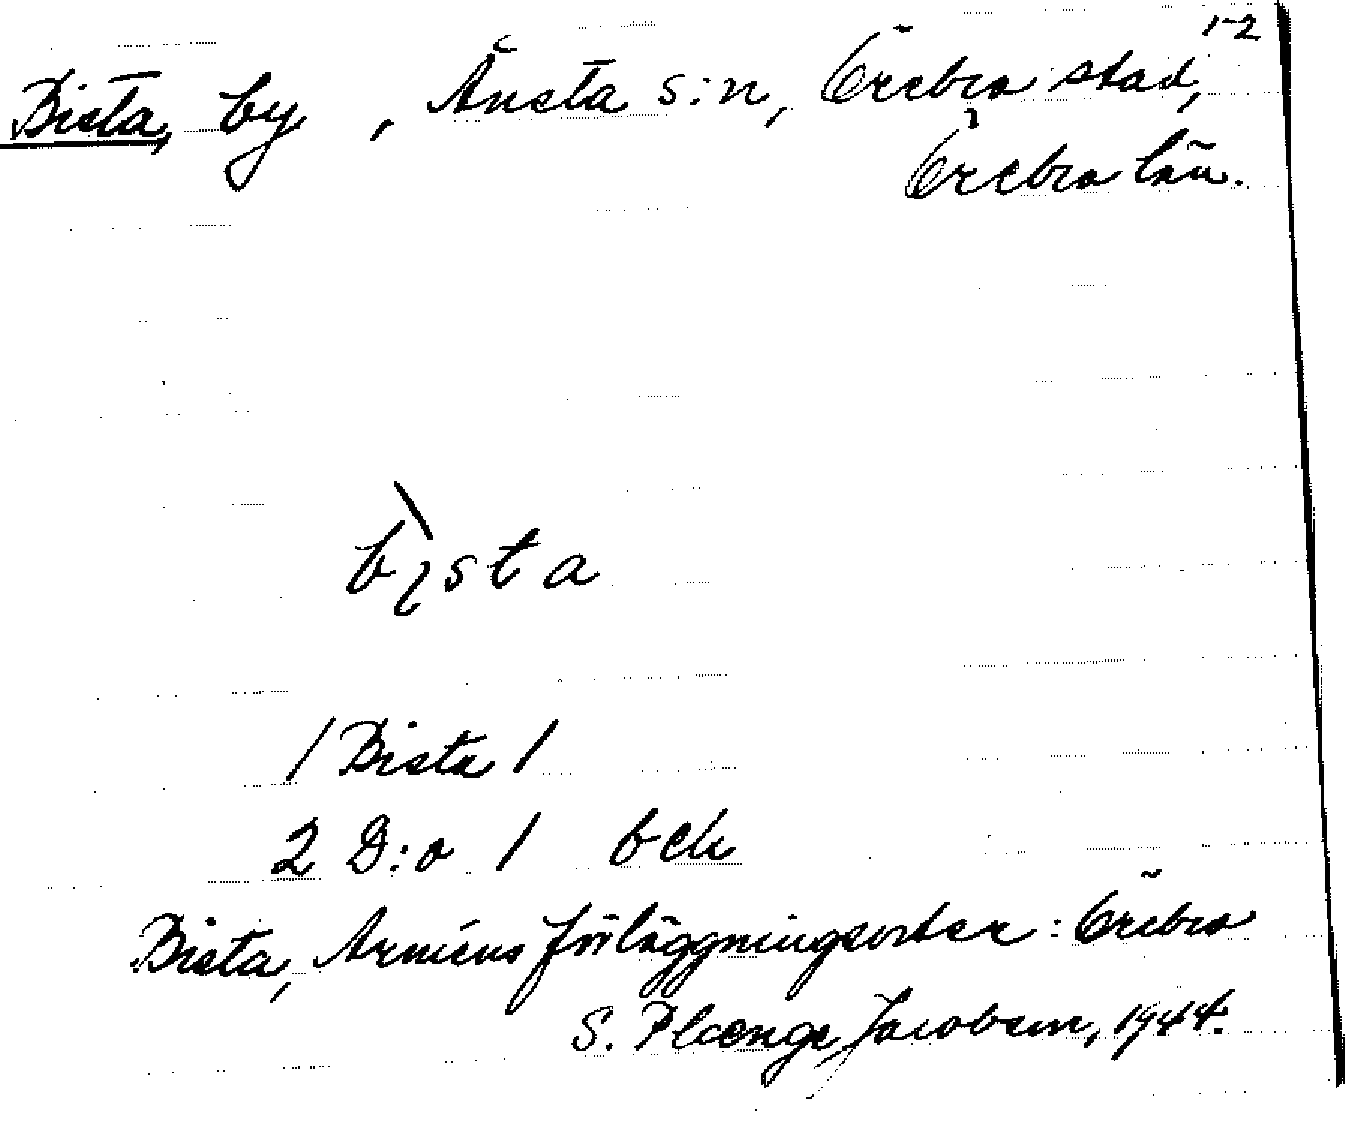 1-2
Bista, by , Ånsta s:n, Örebro stad,
Örebro län.
bısta
1 Bista /
2 D:o /
Bista, Arméns förläggningsorter: Örebro
S. Plænge Jacobsen, 1944.